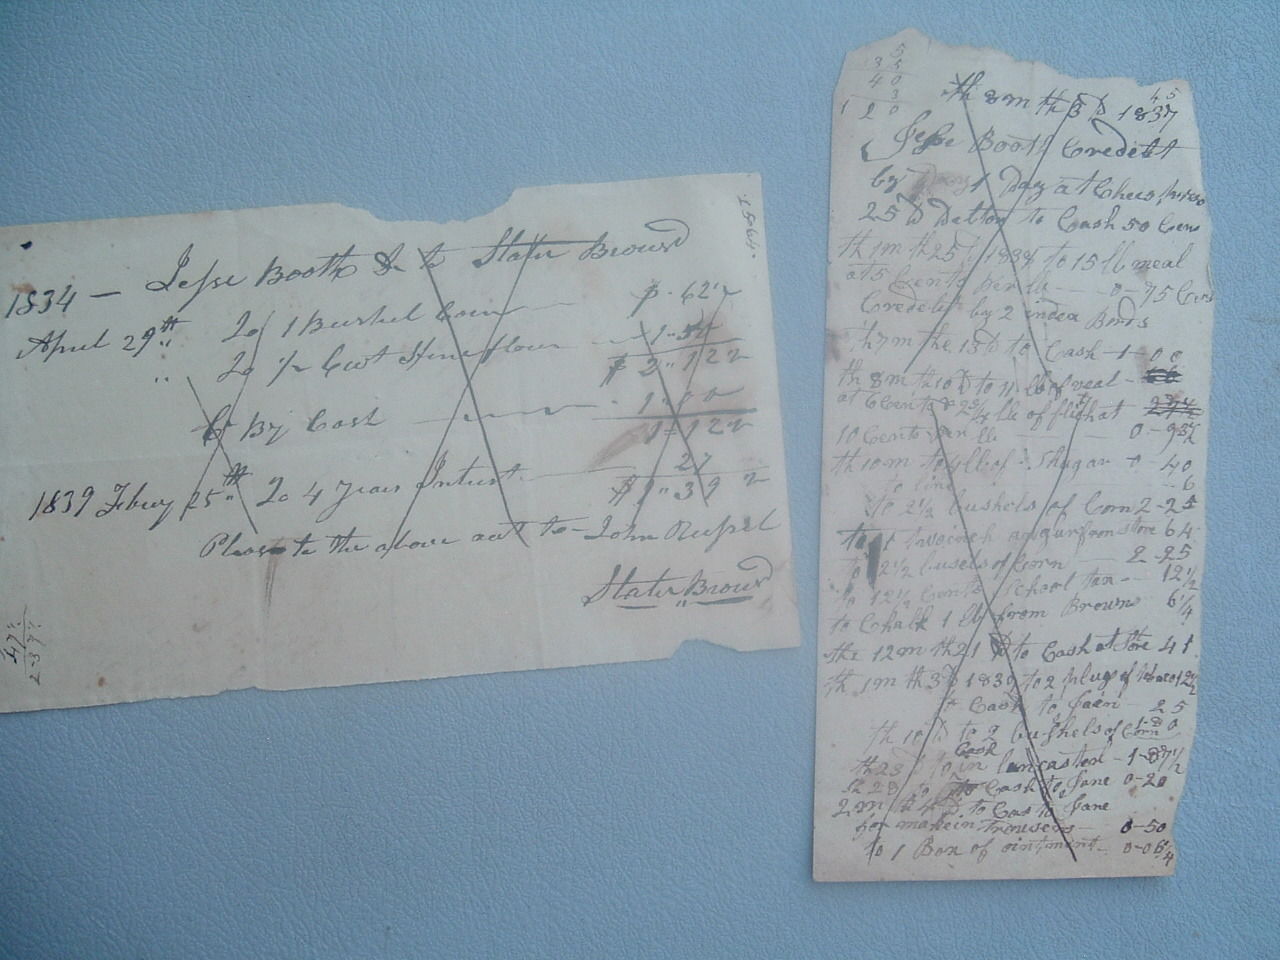 1834 — Jesse Booth Dr to Slater Brown
April 29th To 1 Bushel Corn $ .62½
" To ½ Cwt flour 1.50
$ 2.12½
Cr By Cash 1.00
1=12½
1839 Febuy 25th To 4 years Intrest 27
$ 1.39½
Please to the above aut to John Russel
Slater Brown
1564
4 7½
2-37½
5
3 5
4 0
3
1 2 0
45
th 8m th 3 D 1837
Jesse Booth Credebt
by 1 Day at
25 D Debtor to Cash 50 Cens
th 1m th 25 D 1838 to 15 lb meal
at 5 Cents per lb 0-75 Cens
Credebt by 2 index Bords
th 7m the 13 D to Cash 1-00
th 8m th 10 D to 11 lb of veal
at 6 Cents & 2¾ lb of flish at
10 Cents per lb 0-93½
th 10m to 4 lb of Shugar 0-40
to line 6
to 2½ bushels of Corn 2-25
to 1 inch augur from store 64
to 2½ busels of Corn 2-25
to 12½ Cents School tax 12½
to Chalk 1 lb from Brown 6¼
the 12m th 21 D to Cash at Store 41
th 1m th 3 D 1839 to 2 plugs of 12½
to Cash to Jaen 25
th 10 D to 2 bushels of Corn
th 23 D to Cash in lancaston 1-87½
th 28 D to Cash to Jane 0-20
2m th 4 D to Cas to Jane
for makein trousers 0-50
to 1 Box of ointment 0-06¼